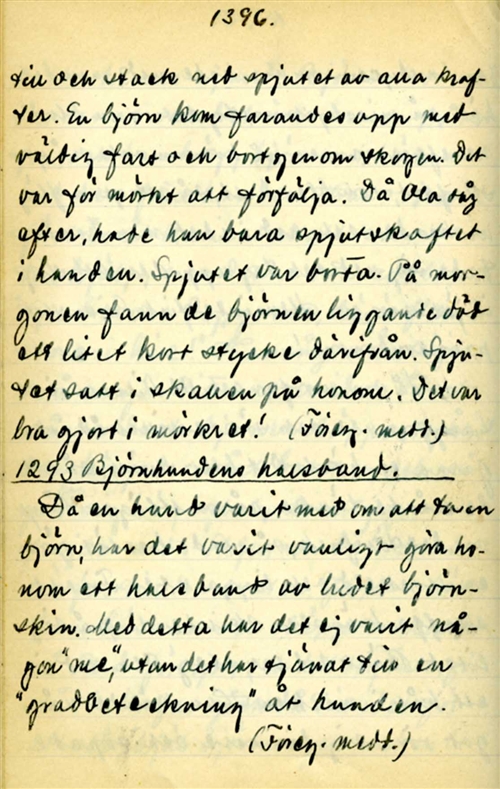 1396.
till och stack ned spjutet av alla kraf-
ter. En björn kom farandes upp med
väldig fart och bort genom skogen. Det
var för mörkt att förfölja. Då Ola såg
efter, hade han bara spjutskaftet
i handen. Spjutet var borta. På mor-
gonen fann de björnen liggande död
ett litet kort stycke därifrån. Spju-
tet satt i skallen på honom. Det var
bra gjort i mörkret! (Föreg. medd.)
1293 Björnhundens halsband.
Då en hund varit med om att ta en
björn, har det varit vanligt göra ho-
nom ett halsband av ludet björn-
skin. Med detta har det ej varit nå-
gon "me", utan det har tjänat till en
"gradbeteckning" åt hunden.
(Föreg. medd.)